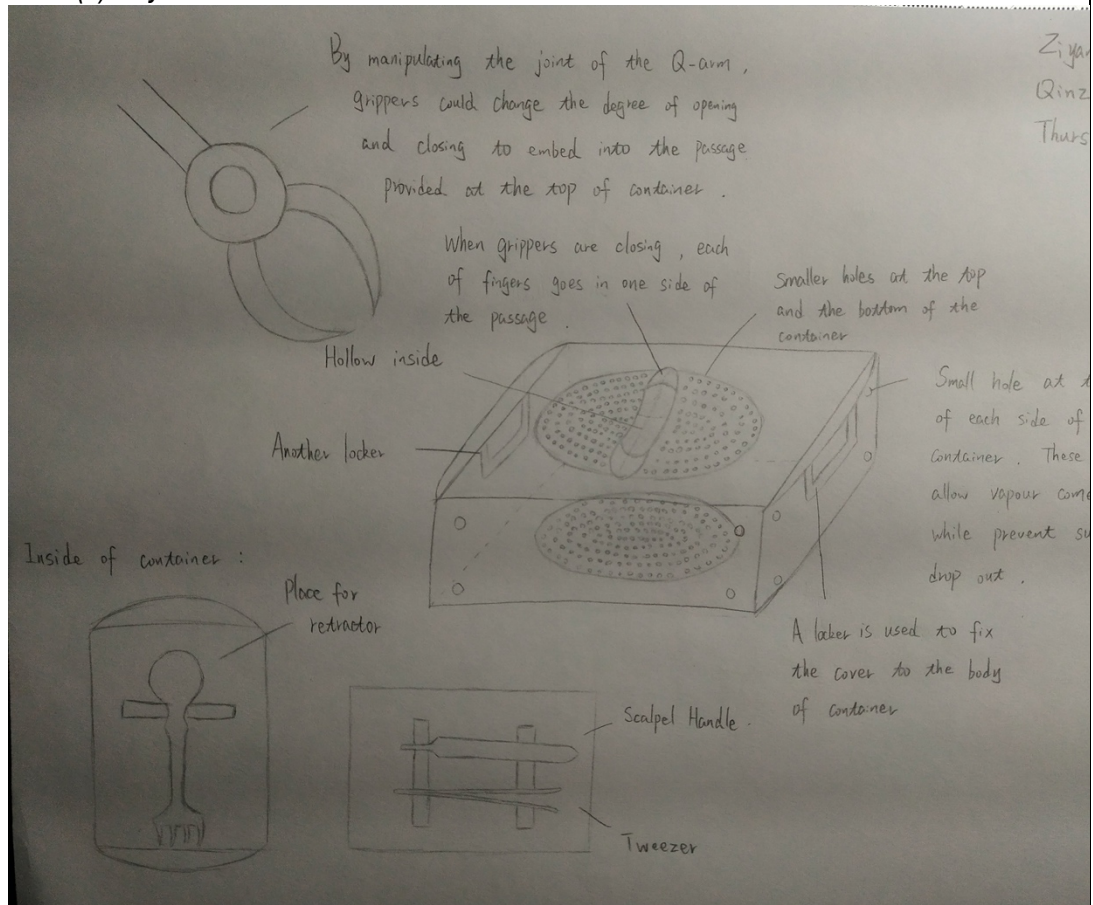 By manipulating the joint of the Q-arm,
grippers could change the degree of opening
and closing to embed into the passage
provided at the top of container.
When grippers are closing, each
of fingers goes in one side of
the passage.
Smaller holes at the top
and the bottom of the
container
Hollow inside
Another locker
Small hole at
of each side of
container. These
allow vapour
while prevent
drop out.
A locker is used to fix
the cover to the body
of container
Inside of container:
Place for
retractor
Scalpel Handle.
Tweezer
Thurs